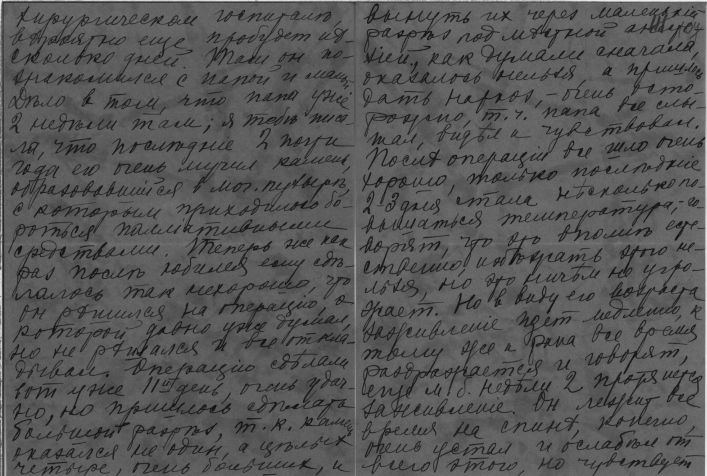 хирургическом госпиталѣ,
вѣроятно еще пробудет нѣ-
сколько дней. Там он по-
знакомился с папой и мамой.
Дѣло в том, что папа уже
2 недѣли там; я тебѣ писа-
ла, что послѣдние 2 почти
года его очень мучил камень,
образовавшийся в моч. пузырѣ,
с которым приходилось бо-
роться паллиативными
средствами. Теперь же как
раз послѣ юбилея ему сдѣ-
лалось так нехорошо, что
он рѣшился на операцію, о
которой давно уже думал,
но не рѣшался и все откла-
дывал. Операцію сдѣлали
вот уже 11ый день, очень удач-
но, но пришлось сдѣлать
большой разрѣз, т. к. камень
оказался не один, а цѣлых
четыре, очень больших, и
вынуть их через маленький
разрѣз под мѣстной анесте-
зией, как думали сначала,
оказалось нельзя, а пришлось
дать наркоз, - очень осто-
рожно, т. ч. папа все слы-
шал, видѣл и чувствовал.
Послѣ операціи все шло очень
хорошо, только послѣдние
2-3 дня стала нѣсколько по-
вышаться температура, - го-
ворят, что это вполнѣ есте-
ственно, и избѣжать этого не-
льзя, но это ничѣм не угро-
жает. Но в виду его возраста
заживленіе идет медленно, к
тому же и рана все время
раздражается и говорят,
еще м. б. недѣли 2 протянется
заживленіе. Он лежит все
время на спинѣ, конечно,
очень устал и ослабѣл от
всего этого, но чувствует